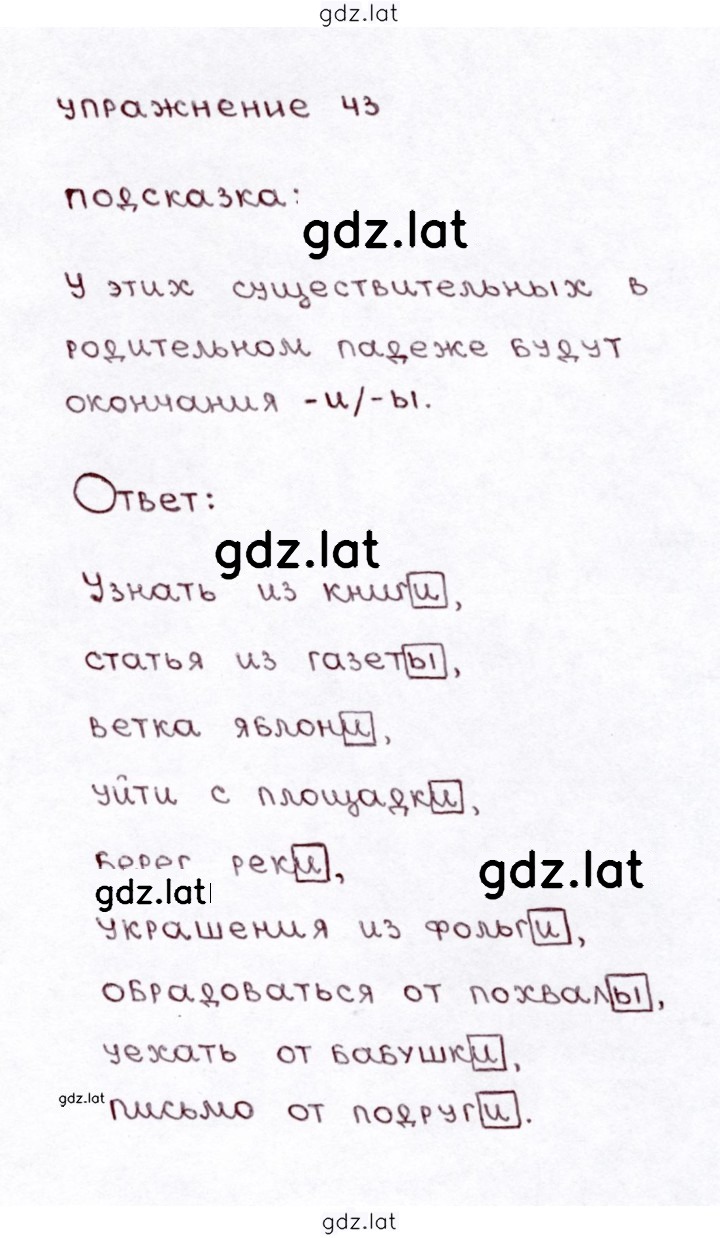 gdz.lat
упражнение 43
подсказка:
gdz.lat
У этих существительных в
родительном падеже будут
окончания -и/-ы.
Ответ:
gdz.lat
Узнать из книги,
статья из газеты,
ветка яблони,
уйти с площадки,
берег реки,
gdz.lat
gdz.lat
украшения из фольги,
обрадоваться от похвалы,
уехать от бабушки,
gdz.lat
письмо от подруги.
gdz.lat